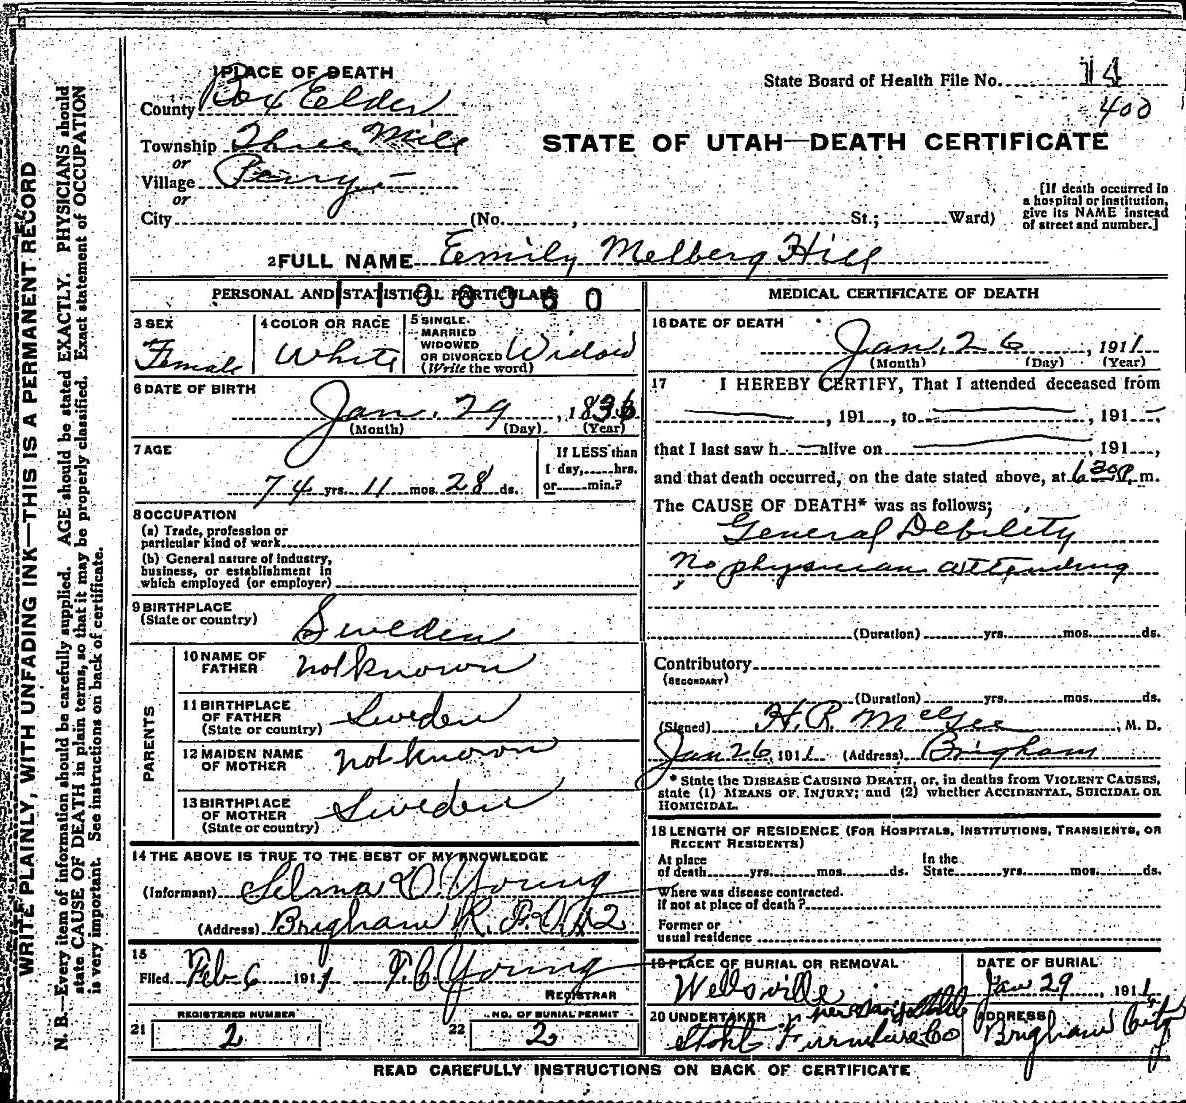 WRITE PLAINLY, WITH UNFADING INK—THIS IS A PERMANENT RECORD
N. B.—Every item of information should be carefully supplied. AGE should be stated EXACTLY. PHYSICIANS should
state CAUSE OF DEATH in plain terms, so that it may be properly classified. Exact statement of OCCUPATION
is very important. See instructions on back of certificate.
1 PLACE OF DEATH
County Box Elder
Township Three Mile
or
Village Perry
or
City (No. , St.; Ward)
State Board of Health File No. 14
400
STATE OF UTAH—DEATH CERTIFICATE
[If death occurred in
a hospital or institution,
give its NAME instead
of street and number.]
2 FULL NAME Emily Melberg Hill
PERSONAL AND STATISTICAL PARTICULARS
3 SEX
Female
4 COLOR OR RACE
White
5 SINGLE
MARRIED
WIDOWED
OR DIVORCED Widow
(Write the word)
6 DATE OF BIRTH
Jan. 29, 1836
(Month) (Day) (Year)
7 AGE
74 yrs. 11 mos. 28 ds.
If LESS than
1 day, hrs.
or min.?
8 OCCUPATION
(a) Trade, profession or
particular kind of work
(b) General nature of industry,
business, or establishment in
which employed (or employer)
9 BIRTHPLACE
(State or country)
Sweden
PARENTS
10 NAME OF
FATHER not known
11 BIRTHPLACE
OF FATHER
(State or country) Sweden
12 MAIDEN NAME
OF MOTHER not known
13 BIRTHPLACE
OF MOTHER
(State or country) Sweden
14 THE ABOVE IS TRUE TO THE BEST OF MY KNOWLEDGE
(Informant) Selma O. Young
(Address) Brigham R.F.D. #2
15
Filed Feb 6 1911 Young
REGISTRAR
REGISTERED NUMBER
21 2
NO. OF BURIAL PERMIT
22 2
MEDICAL CERTIFICATE OF DEATH
16 DATE OF DEATH
Jan. 26, 1911
(Month) (Day) (Year)
17 I HEREBY CERTIFY, That I attended deceased from
, 191 , to , 191
that I last saw h alive on , 191 ,
and that death occurred, on the date stated above, at 6 30 P. m.
The CAUSE OF DEATH* was as follows;
General Debility
No physician attending
(Duration) yrs. mos. ds.
Contributory
(SECONDARY)
(Duration) yrs. mos. ds.
(Signed) H. R. McGee, M. D.
Jan 26, 1911 (Address) Brigham
* State the DISEASE CAUSING DEATH, or, in deaths from VIOLENT CAUSES,
state (1) MEANS OF INJURY; and (2) whether ACCIDENTAL, SUICIDAL OR
HOMICIDAL.
18 LENGTH OF RESIDENCE (FOR HOSPITALS, INSTITUTIONS, TRANSIENTS, OR
RECENT RESIDENTS)
At place
of death yrs. mos. ds.
In the
State yrs. mos. ds.
Where was disease contracted.
if not at place of death?
Former or
usual residence
19 PLACE OF BURIAL OR REMOVAL
Wellsville
DATE OF BURIAL
Jan 29, 1911
20 UNDERTAKER per
Stohl Furniture Co
ADDRESS
Brigham City
READ CAREFULLY INSTRUCTIONS ON BACK OF CERTIFICATE